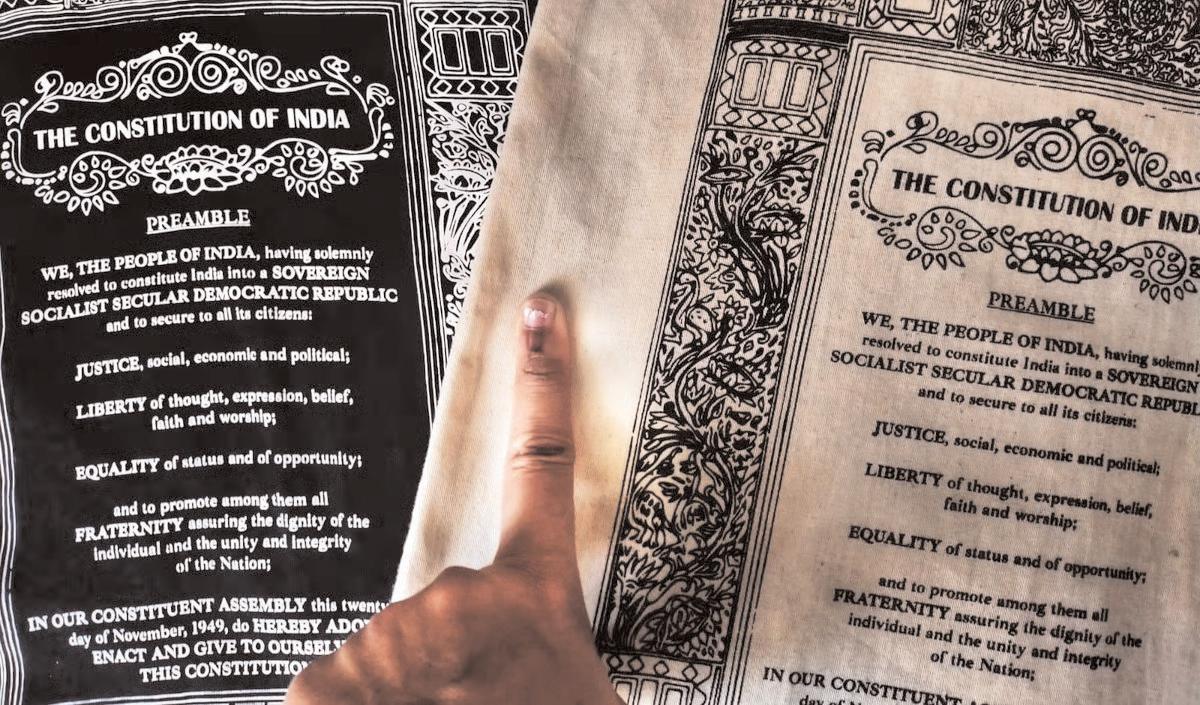 THE CONSTITUTION OF INDIA
PREAMBLE
WE, THE PEOPLE OF INDIA, having solemnly
resolved to constitute India into a SOVEREIGN
SOCIALIST SECULAR DEMOCRATIC REPUBLIC
and to secure to all its citizens:
JUSTICE, social, economic and political;
LIBERTY of thought, expression, belief,
faith and worship;
EQUALITY of status and of opportunity;
and to promote among them all
FRATERNITY assuring the dignity of the
individual and the unity and integrity
of the Nation;
IN OUR CONSTITUENT ASSEMBLY this twenty
day of November, 1949, do HEREBY ADO
ENACT AND GIVE TO OURSEL
THIS CONSTITUTION
THE CONSTITUTION OF IND
PREAMBLE
WE, THE PEOPLE OF INDIA, having solemnl
resolved to constitute India into a SOVEREIGN
SOCIALIST SECULAR DEMOCRATIC REPUBL
and to secure to all its citizens:
JUSTICE, social, economic and political;
LIBERTY of thought, expression, belief,
faith and worship;
EQUALITY of status and of opportunity;
and to promote among them all
FRATERNITY assuring the dignity of the
individual and the unity and integrity
of the Nation;
IN OUR CONSTITUENT